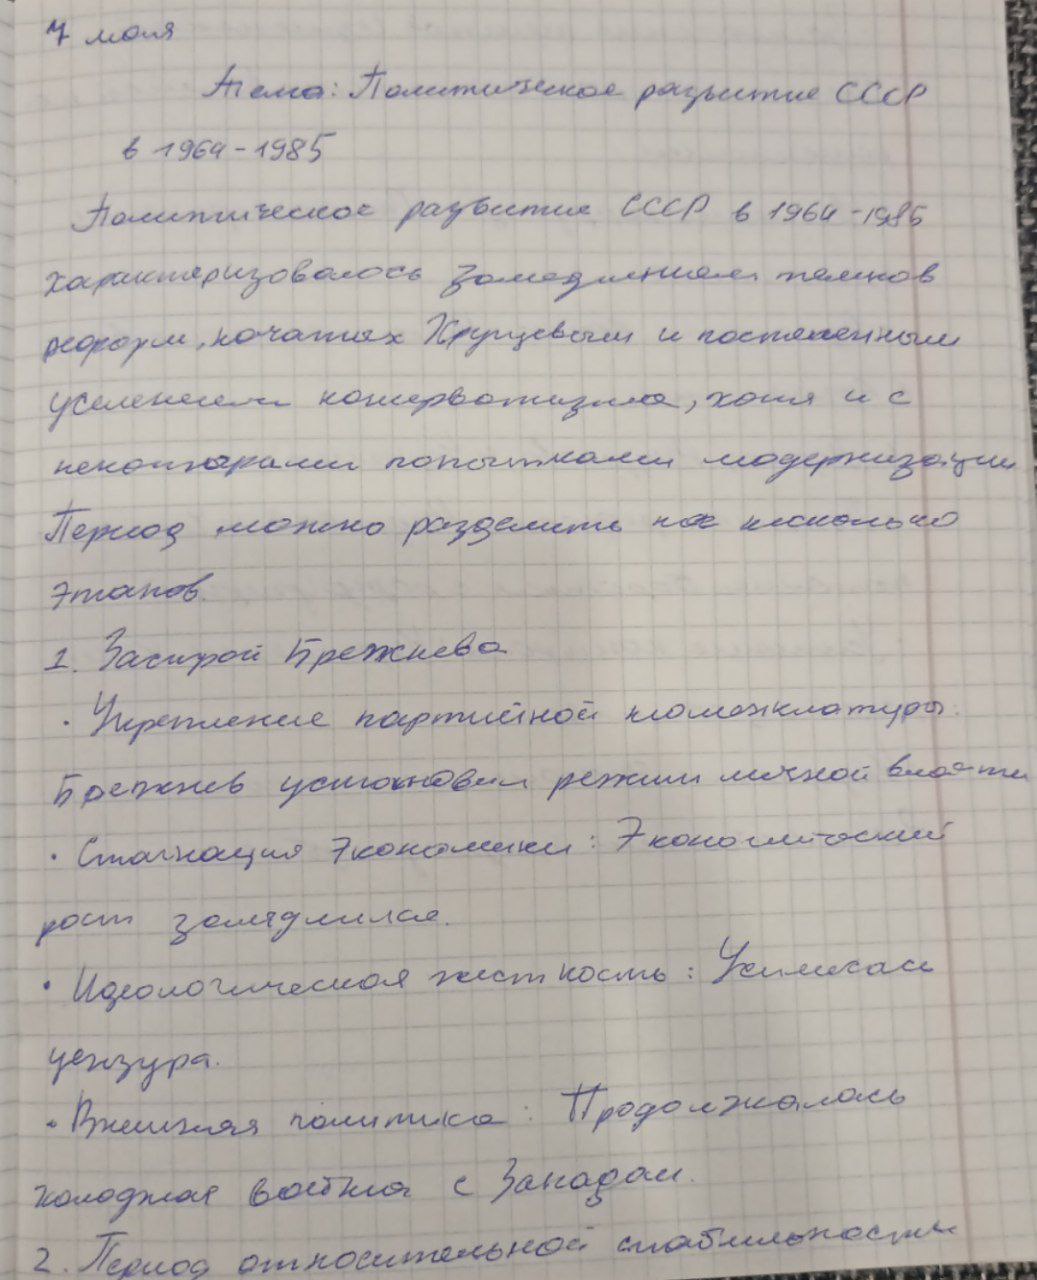 7 мая
Тема: Политическое развитие СССР
в 1964-1985
Политическое развитие СССР в 1964-1985
характеризовалось замедлением темпов
реформ, начатых Хрущевым и постепенным
усилением консерватизма, хотя и с
некоторыми попытками модернизации
Период можно разделить на несколько
этапов.
1. Застрой Брежнева
· Укрепление партийной номенклатуры.
Брежнев установил режим личной власти
· Стагнация экономики: Экономический
рост замедлился.
· Идеологическая жесткость: Усилилась
цензура.
· Внешняя политика: Продолжалась
холодная война с Западом.
2. Период относительной стабильности